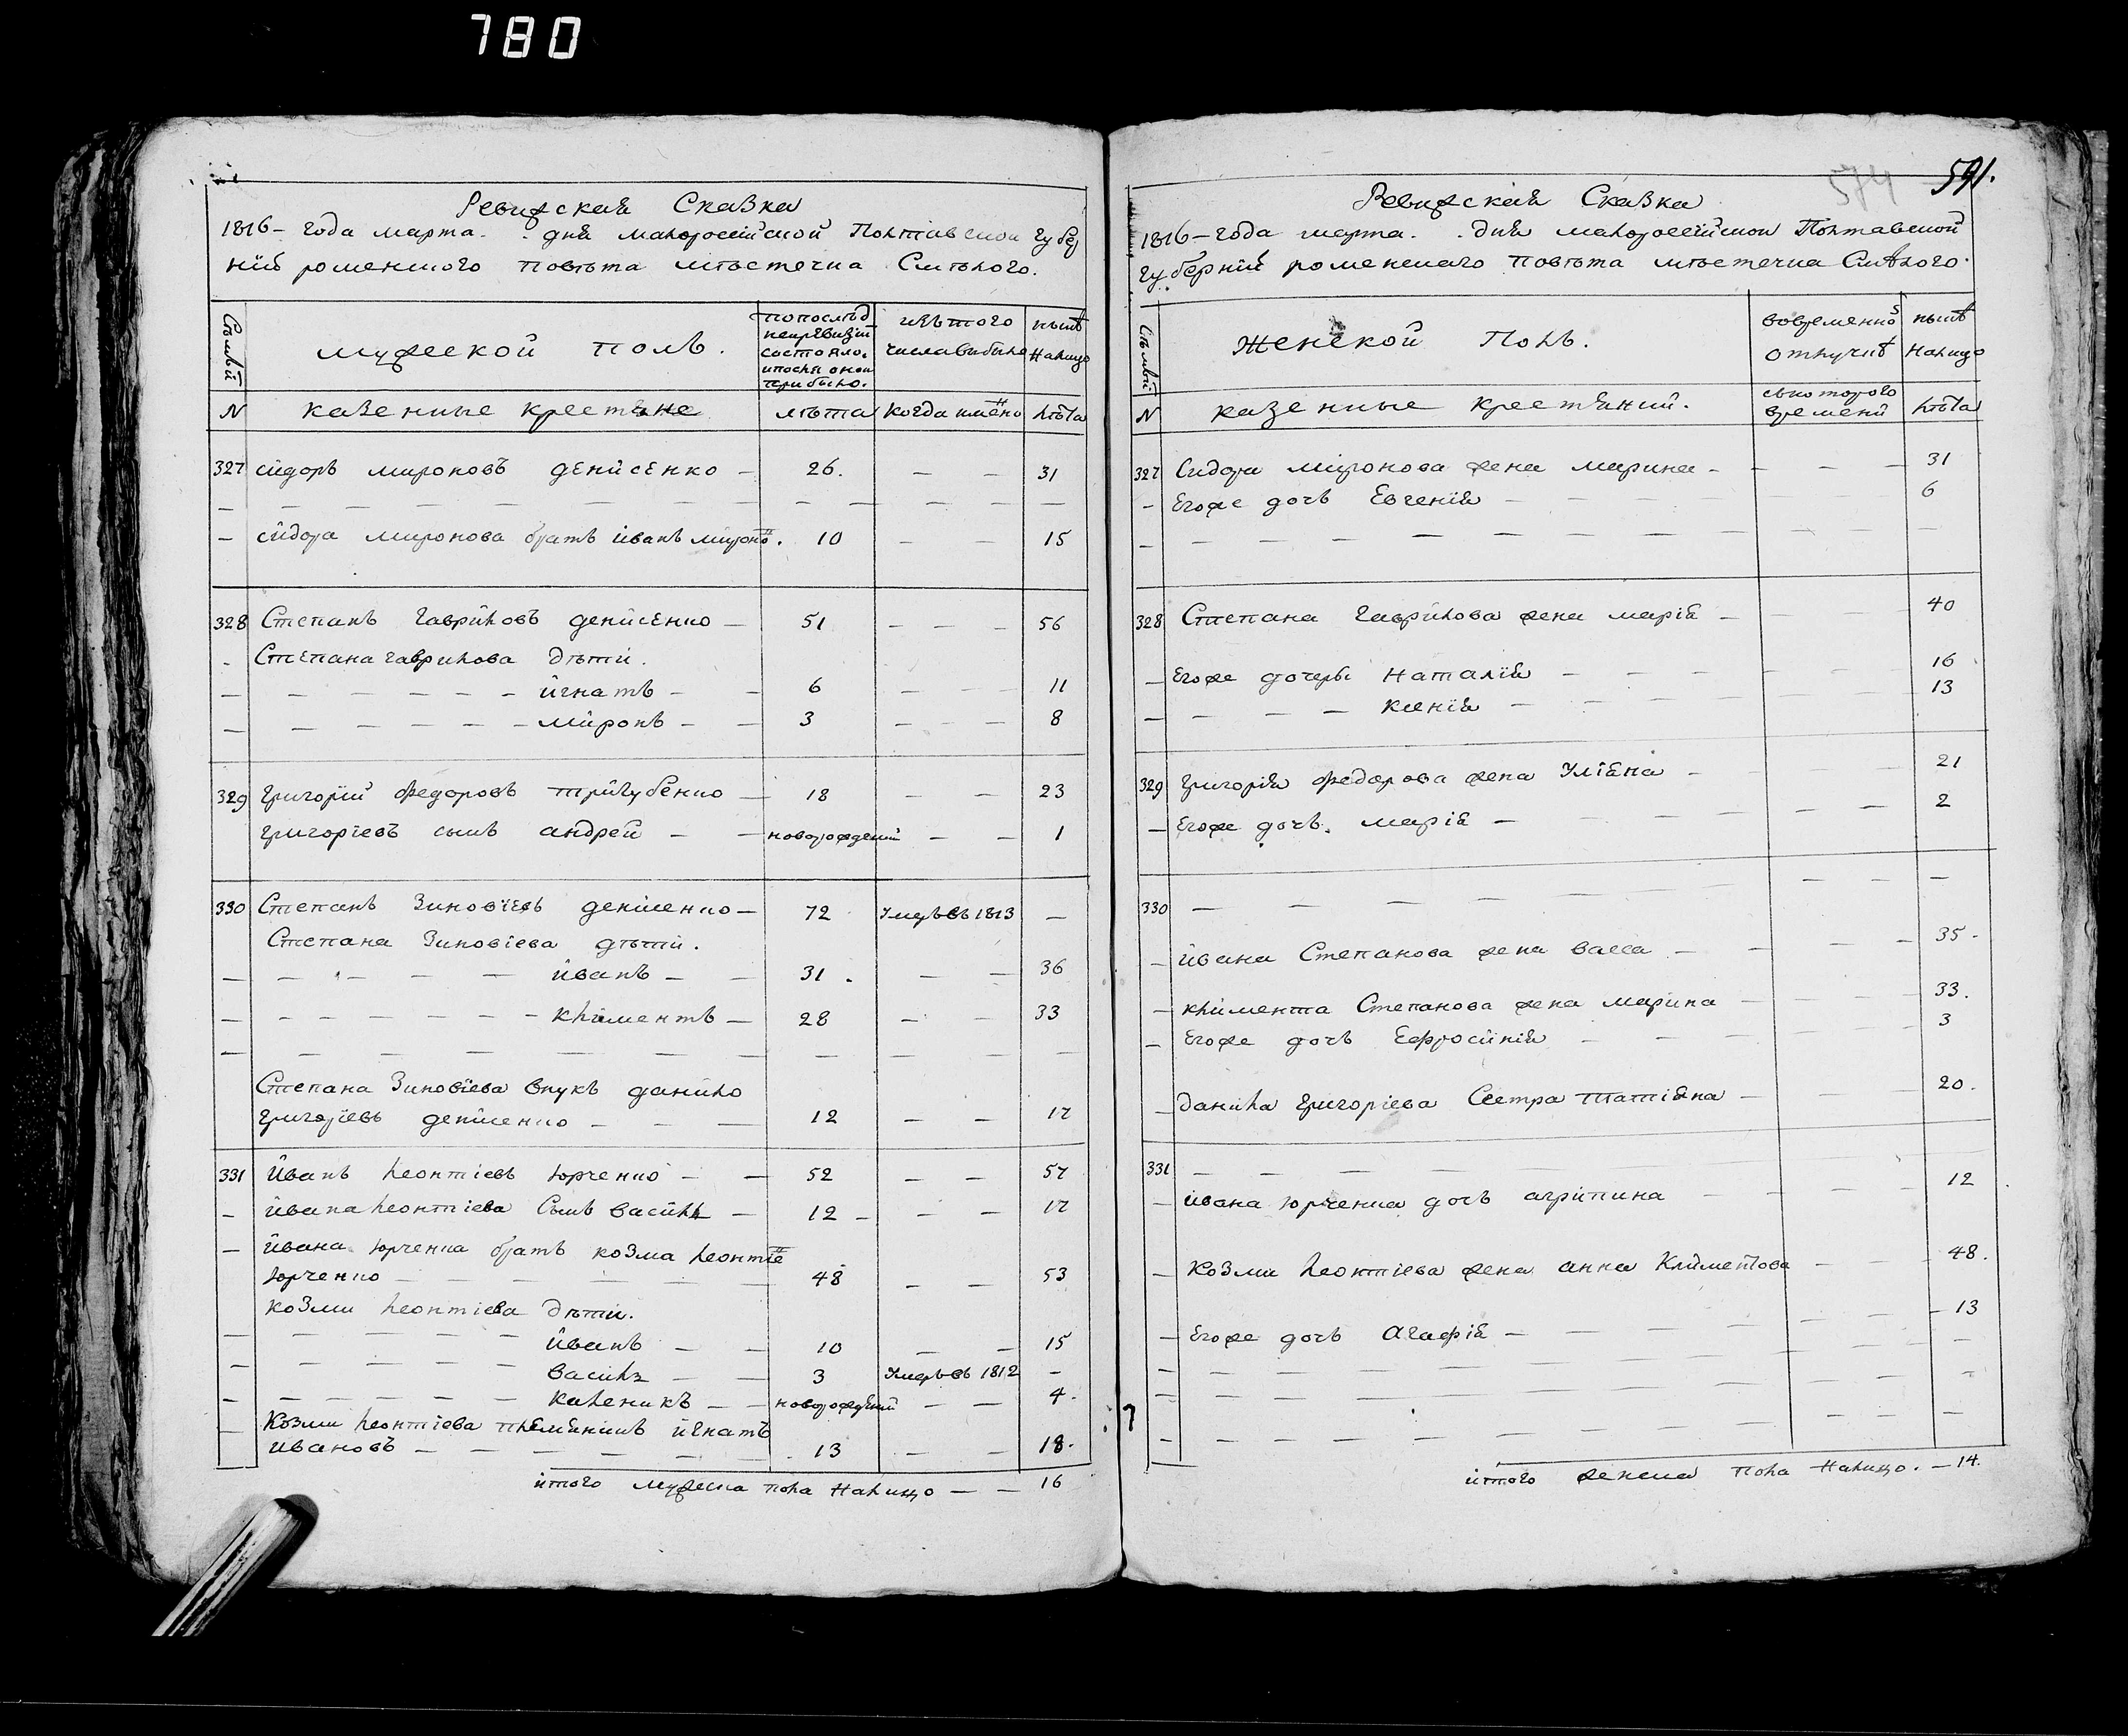 780
Ревизская Сказка
1816 - года марта . . дня малороссійской Полтавской губер
ніи роменского повѣта мѣстечка Смѣлого.
Семьи
мужеской полъ.
попослѣд
неиревизіи
состояло.
ипосля оной
прибыло.
изътого
числавыбыло
нынѣ
налицо
N
казенные крестьяне
лѣта
когда имено
лѣта
327 сидоръ мироновъ денисенко — 26. — — 31
— — — — — — — — — —
— сидора миронова братъ иванъ мироно. 10 — — 15
328 Степанъ гавриловъ денисенко — 51 — — — 56
- Степана гаврилова дѣти.
— — — — — — игнатъ — — 6 — — — 11
— — — — — — миронъ — — 3 — — — 8
329 григорій федоровъ тригубенко — 18 — — 23
григоріевъ сынъ андрей — — новорожденій — — 1
330 Степанъ Зиновіевъ денисенко — 72 Умеръ въ 1813 —
Степана Зиновіева дѣти.
— — — — — иванъ — — 31. — — 36
— — — — — — климентъ — 28 — — 33
— — — — — — — — — —
Степана Зиновіева внукъ данило
григоріевъ денисенко — — — 12 — — 17
331 Иванъ леонтіевъ юрченко — — 52 — — 57
— ивана леонтіева Сынъ василь — 12 — — — 17
— ивана юрченка братъ козма леонтіе
юрченко — — — — — 48 — — 53
козми леонтіева дѣти.
— — — — — иванъ — — 10 — — 15
— — — — — василь — — 3 Умеръ въ 1812 —
— — — — — каленикъ — — новорожденій — — 4.
— Козми леонтіева племѣникъ игнатъ
ивановъ — — — — — 13 — — 18.
итого мужеска пола налицо — — 16
574
591.
Ревизская Сказка
1816 - года марта . . дня малороссійской Полтавской
губерніи роменскаго повѣта мѣстечка Смѣлого.
Семьи
Женской Полъ.
вовременно
отлучкѣ
нынѣ
налицо
N
казенные крестьяний.
скоторого
времени
лѣта
327 Сидора миронова жена марина — — — — 31
— Егоже дочь Евгенія — — — — 6
— — — — — — — — — —
328 Степана гаврилова жена марія — — — — 40
— Егоже дочери наталія — — — — 16
— — — — ксенія — — — — 13
329 григорія федорова жена Уліяна — — — — 21
— Егоже дочь. марія — — — — 2
330 — — — — — — — — —
— ивана Степанова жена васса — — — — 35.
— климента Степанова жена марина — — — 33.
— Егоже дочь Ефросинія — — — — 3
— данила григоріева Сестра татіяна — — — 20.
331 — — — — — — —
— ивана юрченка дочь агрипина — — — — 12
— Козми леонтіева жена анна Климентова — — — 48.
— Егоже дочь агафія — — — — — 13
— — — — — — — — —
— — — — — — — — —
— — — — — — — — —
итого женска пола налицо. — 14.